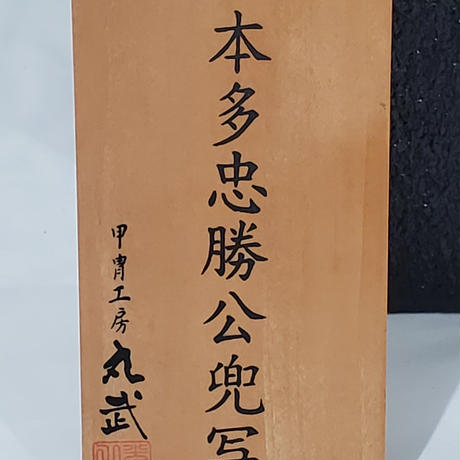 本多忠勝公兜写
甲冑工房 丸武